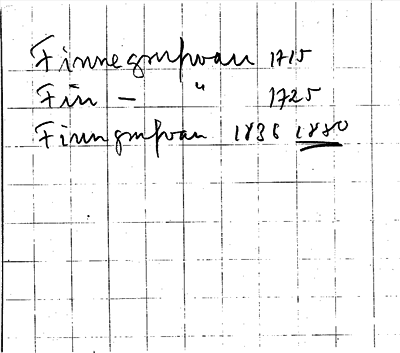 Finnegrufvan 1715
Fin — " 1725
Finngrufvan 1836 1880